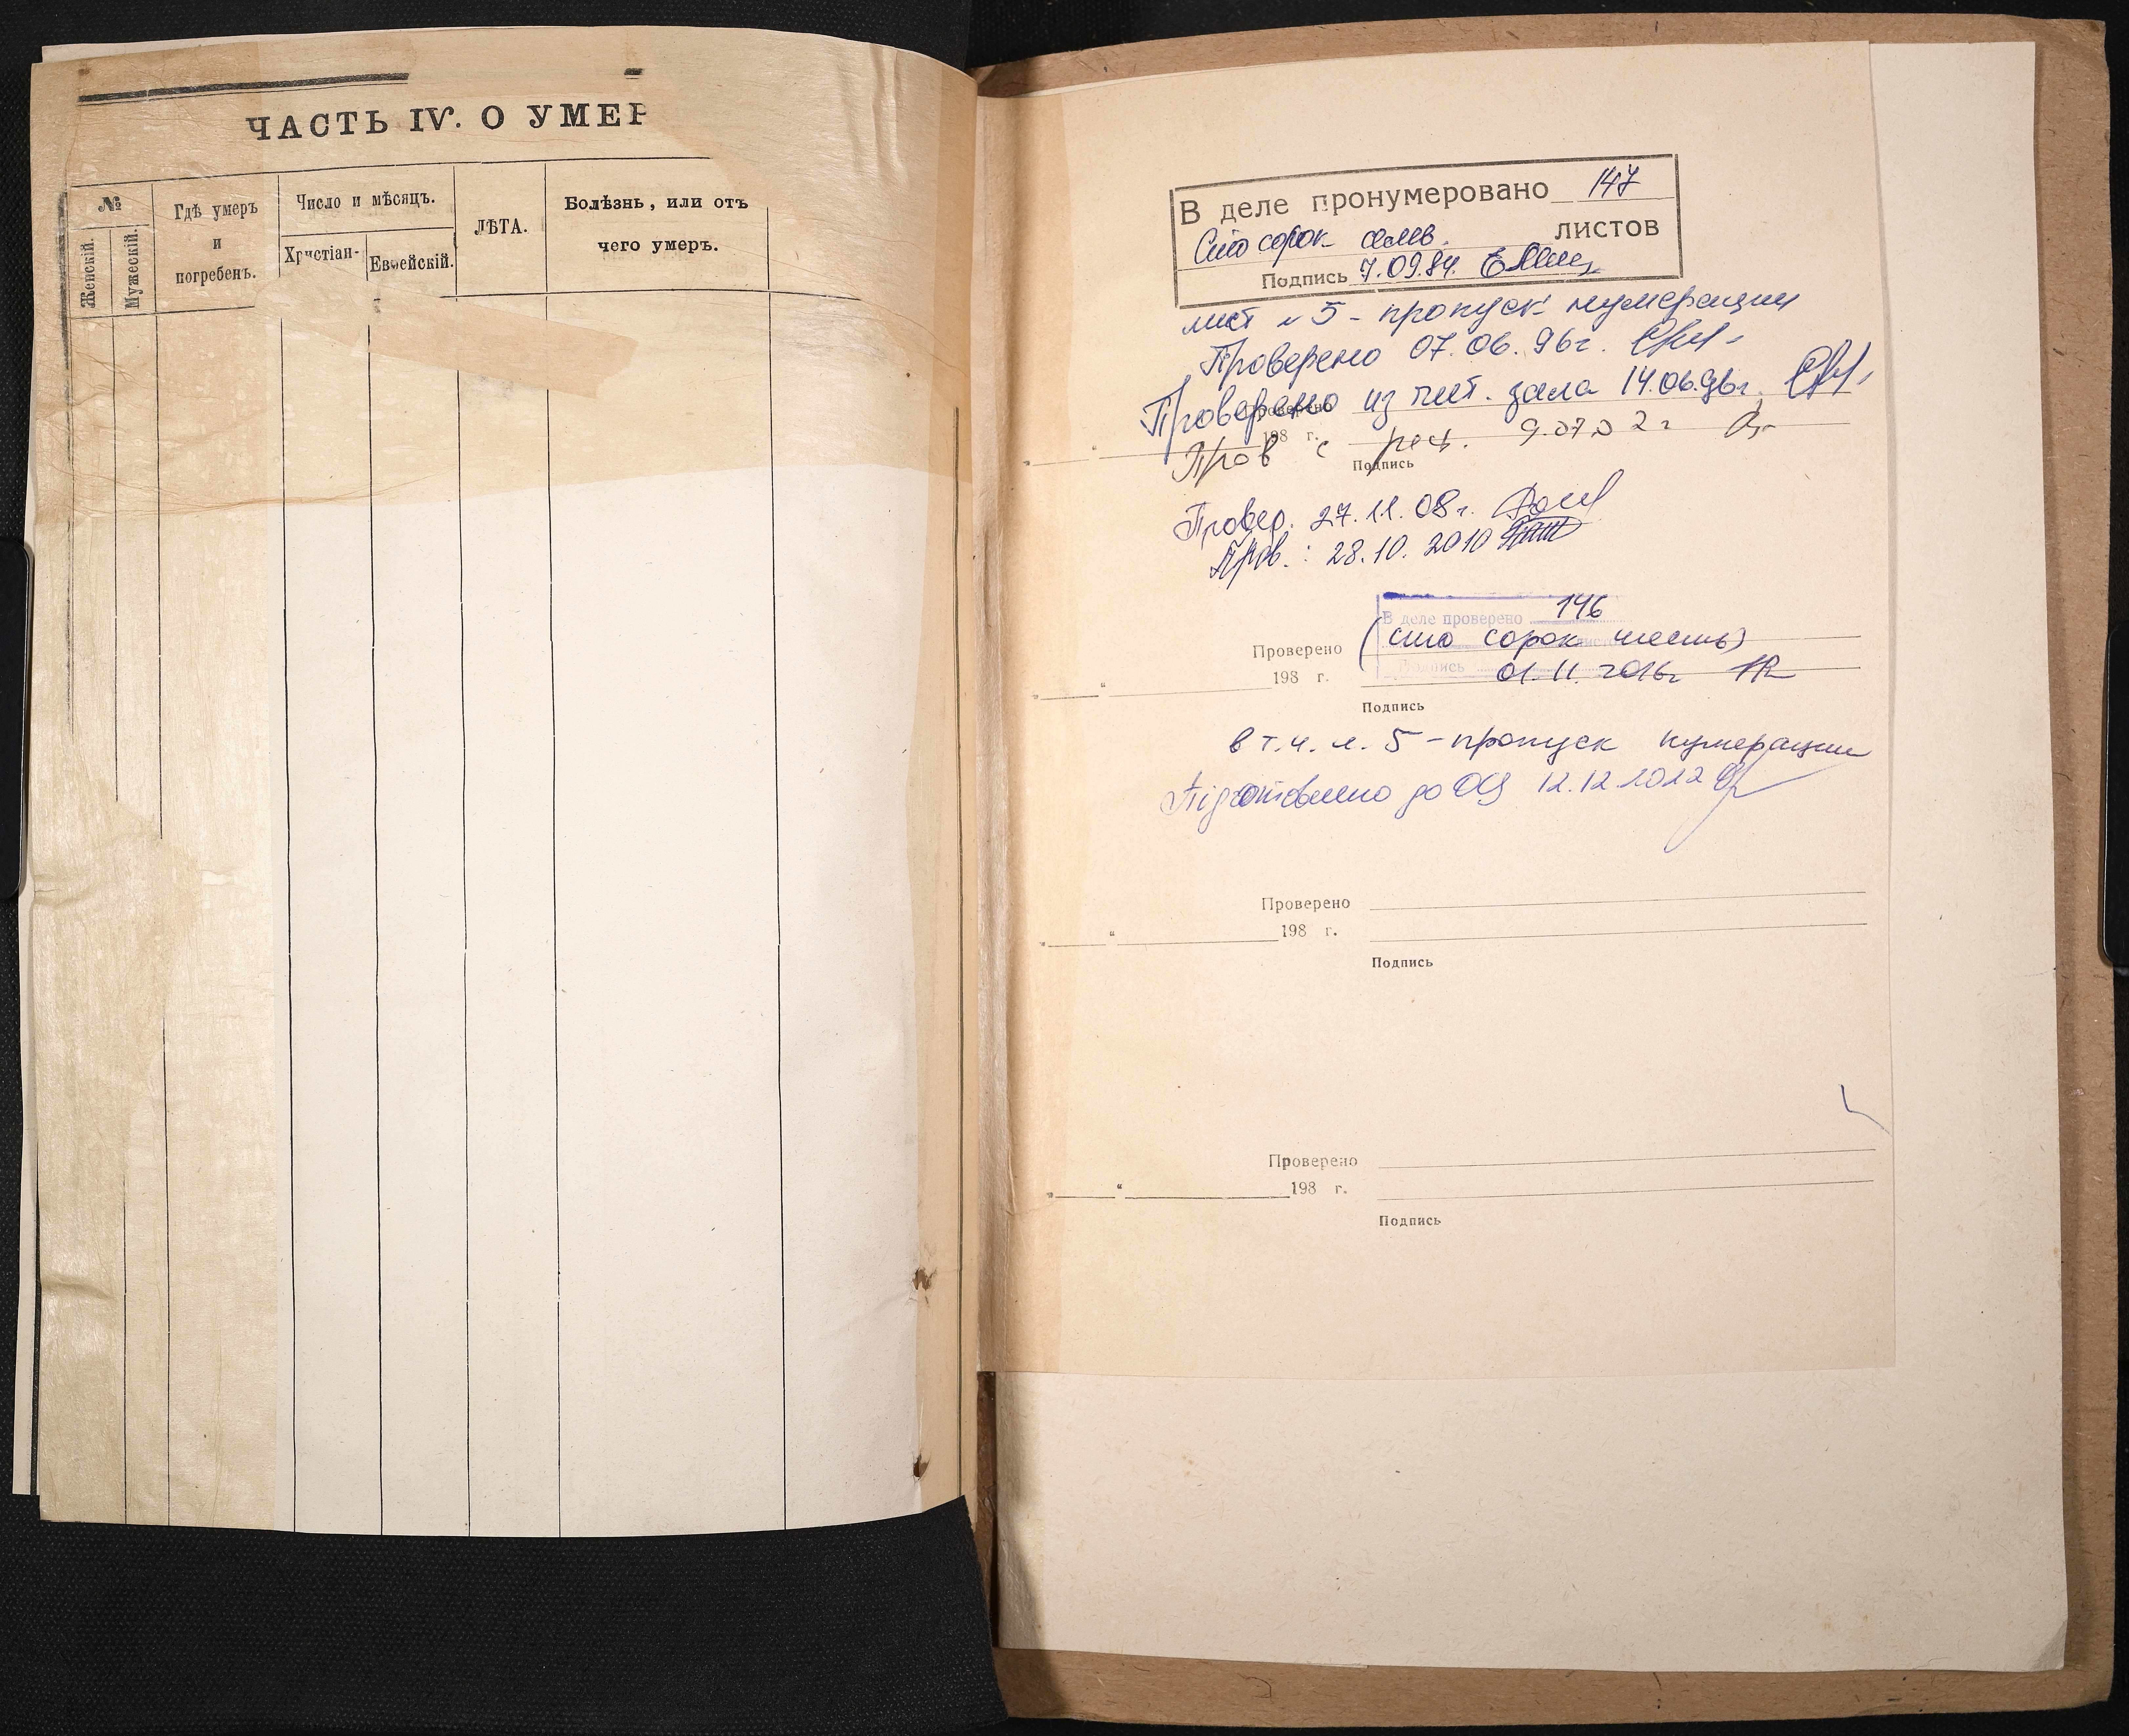 ЧАСТЬ IV. О УМЕР
№
Женскій.
Мужескій.
Гдѣ умеръ
и
погребенъ.
Число и мѣсяцъ.
Христіан-
Еврейскій.
ЛѢТА.
Болѣзнь, или отъ
чего умеръ.
В деле пронумеровано 147
Сто сорок семь листов
Подпись 7.09.84.
лист № 5 - пропуск нумерации
Проверено 07.06.96г.
Проверено из чит. зала 14.06.96г.
Проверено
198 г.
Пров с рест. 9.07.02г
Подпись
Провер. 27.11.08г.
Пров.: 28.10.2010
В деле проверено 146
Проверено (сто сорок шесть)
Подпись 01.11.2016г
198 г.
Подпись
в т.ч. л. 5 - пропуск нумерации
Підготовлено до ОЦ 12.12.2022
Проверено
" " 198 г.
Подпись
Проверено
" " 198 г.
Подпись